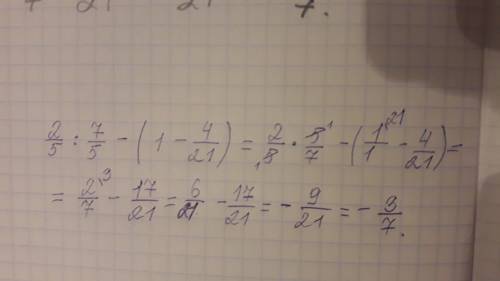 21 21 7.
2/5 : 7/5 - ( 1 - 4/21 ) = 2/5 · 5/7 - ( 1/1 - 4/21 ) =
= 2/7 - 17/21 = 6/21 - 17/21 = - 9/21 = - 3/7.